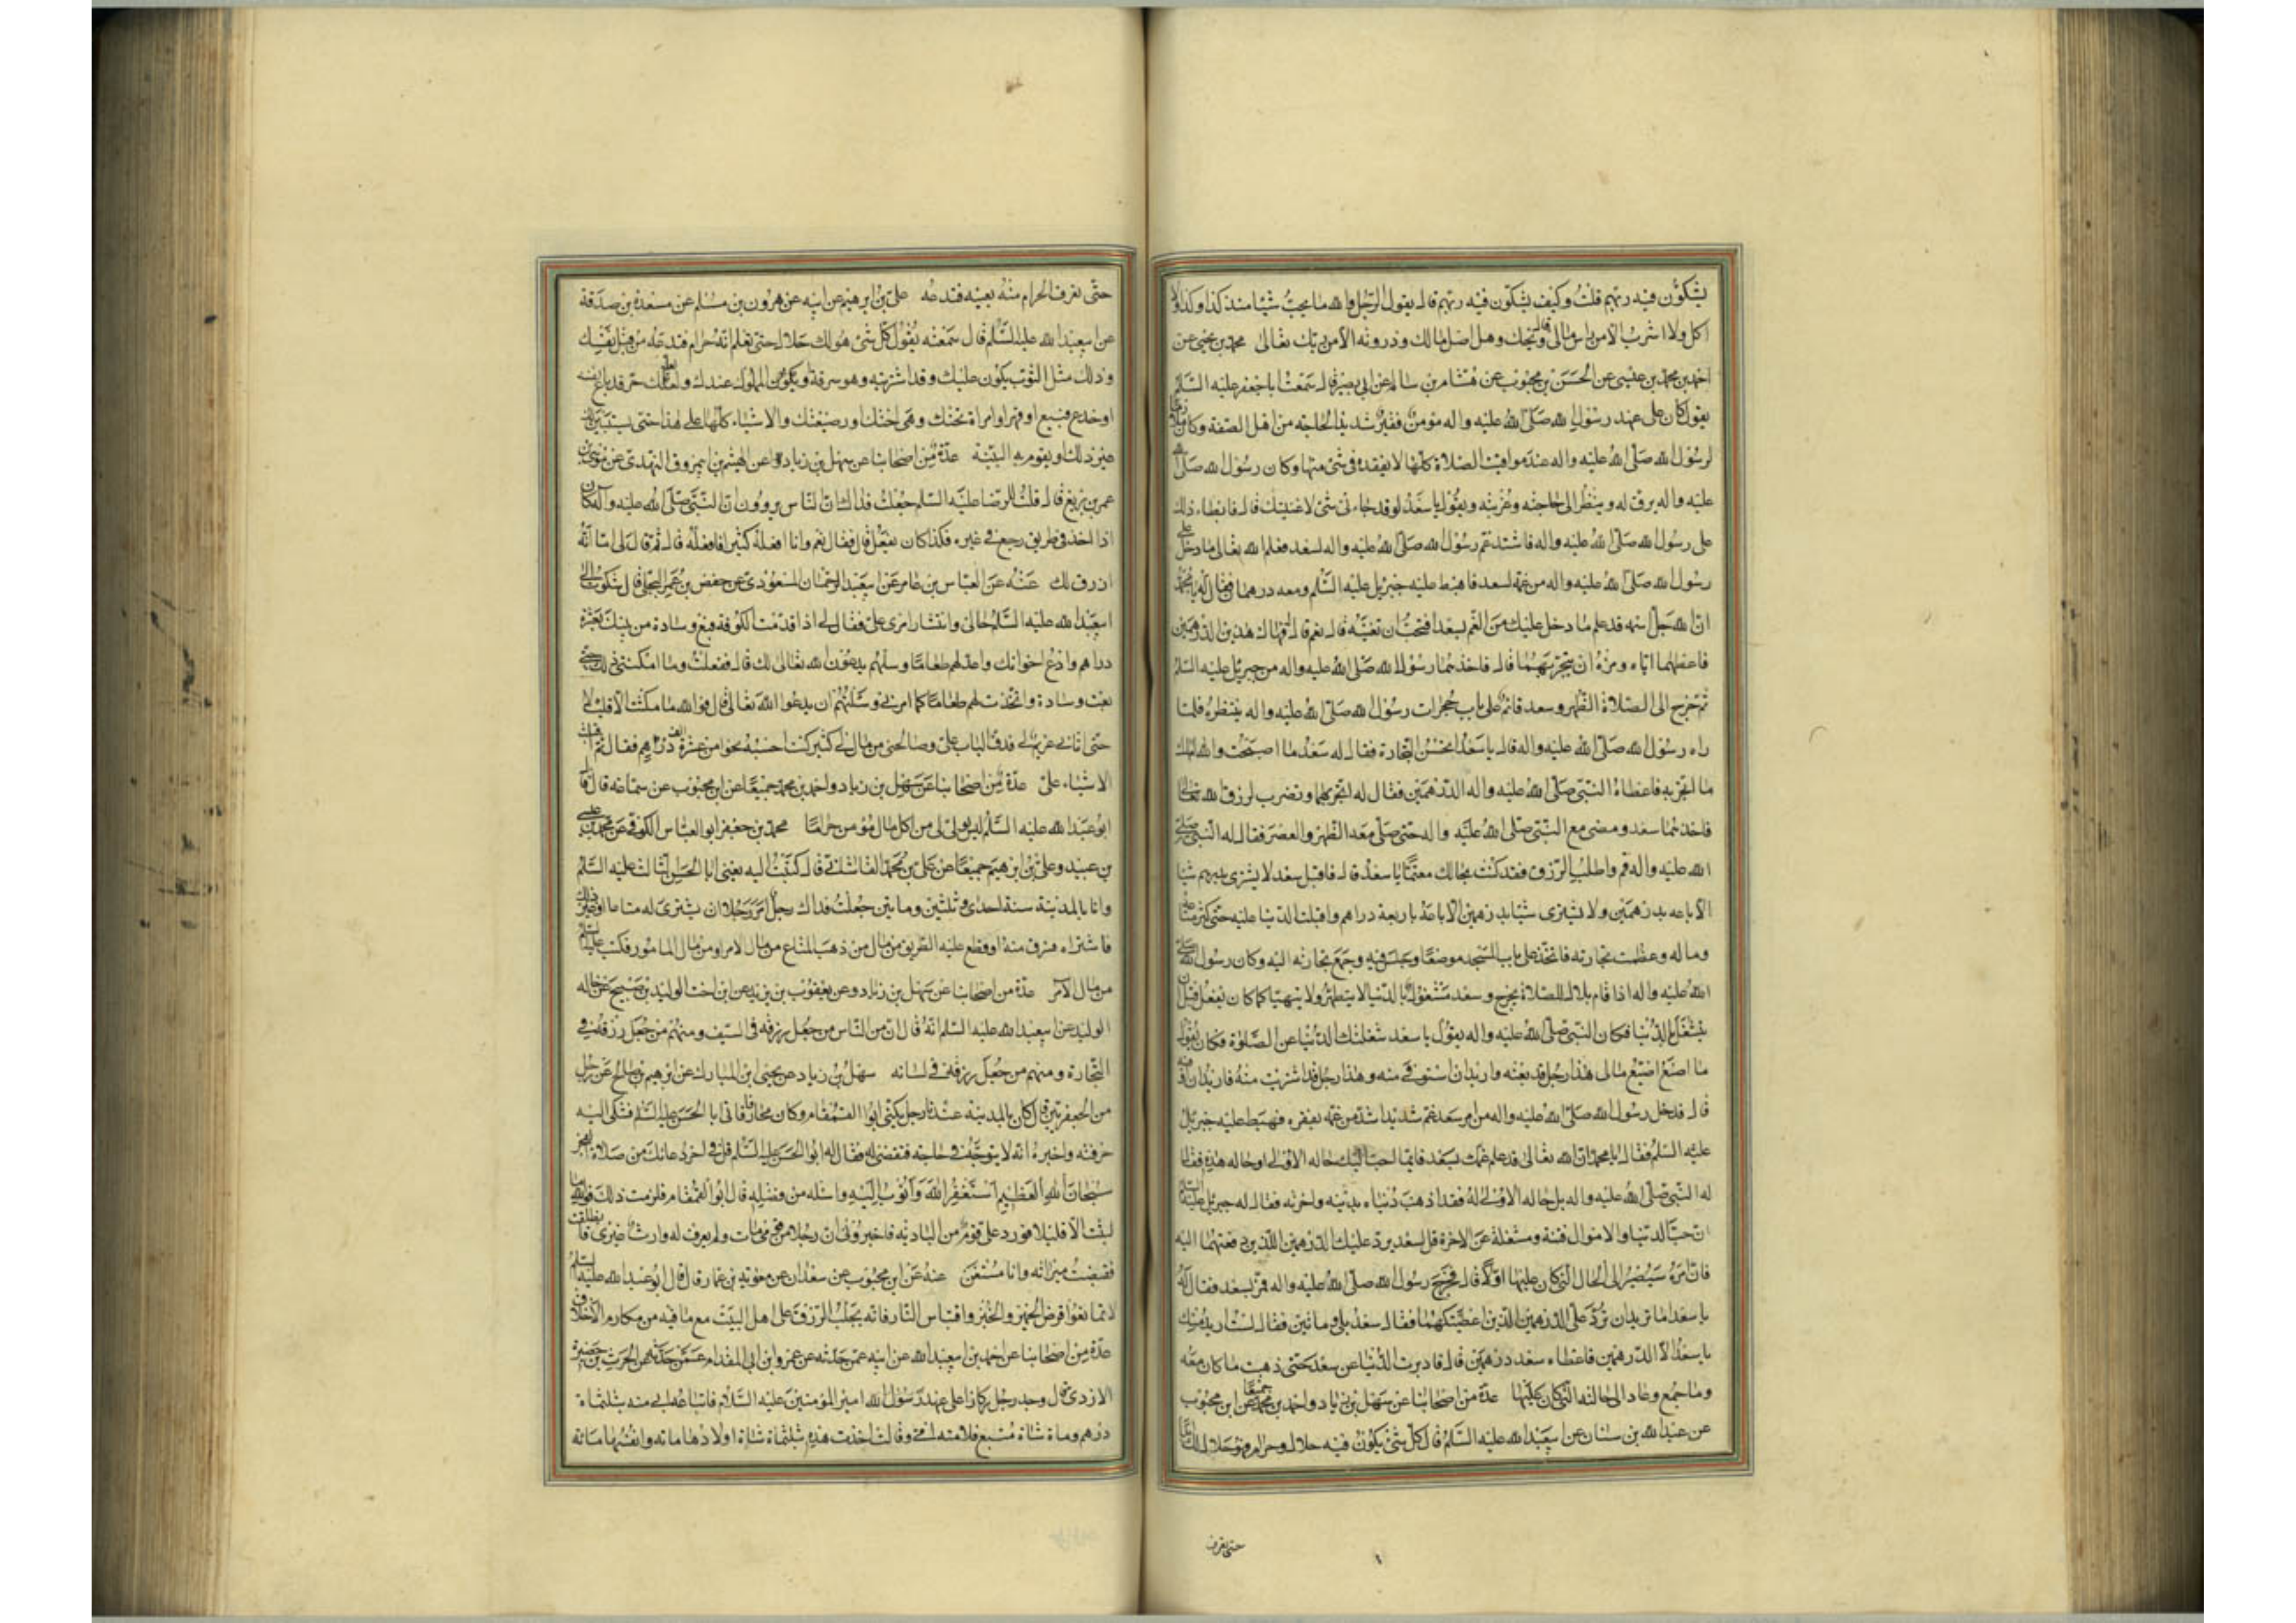 يشكون فيه ربهم قلت وكيف يشكون فيه ربهم قال يقول الرجل والله ما ربحت شيئا منذ كذا وكذا ولا
اكل ولا اشرب الا من راس مالي قال ويحك وهل اصل مالك وذروته الا من ربك تعالى محمد بن يحيى عن
احمد بن محمد بن عيسى عن الحسن بن محبوب عن هشام بن سالم عن ابي بصير قال سمعت ابا جعفر عليه السلام
يقول كان على عهد رسول الله صلى الله عليه واله مومن فقير شديد الحاجة من اهل الصفة وكان
لرسول الله صلى الله عليه واله عند مواقيت الصلاة كلها لا يفقده في شئ منها وكان رسول الله صلى الله
عليه واله يرق له وينظر الى حاجته وغربته ويقول يا سعد لو قد جاءني شئ لاغنيتك قال فابطاء ذلك
على رسول الله صلى الله عليه واله فاشتد غم رسول الله صلى الله عليه واله لسعد فعلم الله تعالى ما دخل على
رسول الله صلى الله عليه واله من غمه لسعد فاهبط عليه جبريل عليه السلم ومعه درهمان فقال له يا محمد
ان الله جل قد علم ما دخل عليك من الغم لسعد افتحب ان تغنيه قال نعم قال فهاك هذين الدرهمين
فاعطهما اياه ومره ان يتجر بهما قال فاخذهما رسول الله صلى الله عليه واله من جبريل عليه السلم
ثم خرج الى الصلاة الظهر وسعد قائم على باب حجرات رسول الله صلى الله عليه واله ينتظره فلما
راه رسول الله صلى الله عليه واله قال يا سعد اتحسن التجارة فقال له سعد ما اصبحت والله املك
ما اتجر به فاعطاه النبي صلى الله عليه واله الدرهمين فقال له اتجر بهما وتصرف لرزق الله تعالى
فاخذهما سعد ومضى مع النبي صلى الله عليه واله حتى صلى معه الظهر والعصر فقال له النبي صلى
الله عليه واله قم واطلب الرزق فقد كنت بحالك مغتما يا سعد قال فاقبل سعد لا يشترى بدرهم شيئا
الا باعه بدرهمين ولا يشترى شيئا بدرهمين الا باعه باربعة دراهم واقبلت الدنيا عليه حتى كثر متاعه
وماله وعظمت تجارته فاتخذ على باب المسجد موضعا وجلس فيه وجمع تجارته اليه وكان رسول الله صلى
الله عليه واله اذا قام بلال للصلاة يخرج وسعد مشغول بالدنيا لا يتطهر ولا يتهيا كما كان يفعل قبل ان
يتشغل بالدنيا فكان النبي صلى الله عليه واله يقول يا سعد شغلتك الدنيا عن الصلوة فكان يقول
ما اصنع اضيع مالي هذا رجل قد بعته واريد ان استوفي منه وهذا رجل قد اشتريت منه فاريد ان اوفيه
قال فدخل رسول الله صلى الله عليه واله من امر سعد غم شديد اشد من غمه بفقره فهبط عليه جبريل
عليه السلم فقال يا محمد ان الله تعالى قد علم غمك بسعد فايما احب اليك حاله الاولى او حاله هذه فقال
له النبي صلى الله عليه واله بل حاله الاولى له فقد اذهبت دنياه بدينه واخرته فقال له جبريل عليه السلم
ان حب الدنيا والاموال فتنة ومشغلة عن الاخرة قل لسعد يرد عليك الدرهمين اللذين دفعتهما اليه
فان امره سيصير الى الحال التي كان عليها اولا قال فخرج رسول الله صلى الله عليه واله فمر بسعد فقال له
يا سعد اما تريد ان ترد على الدرهمين الذين اعطيتكهما فقال سعد بلى ومائتين فقال لست اريد منك
يا سعد الا الدرهمين فاعطاه سعد درهمين قال فادبرت الدنيا عن سعد حتى ذهب ما كان معه
وما جمع وعاد الى حاله التي كان عليها عدة من اصحابنا عن سهل بن زياد واحمد بن محمد جميعا عن ابن محبوب
عن عبد الله بن سنان عن ابي عبد الله عليه السلم قال كل شئ يكون فيه حلال وحرام فهو حلال لك ابدا
حتى تعرف
حتى تعرف الحرام منه بعينه فتدعه علي بن ابرهيم عن ابيه عن هرون بن مسلم عن مسعدة بن صدقة
عن ابي عبد الله عليه السلم قال سمعته يقول كل شئ هو لك حلال حتى تعلم انه حرام فتدعه من قبل نفسك
وذلك مثل الثوب يكون عليك وقد اشتريته وهو سرقة ويكون المملوك عندك ولعله حر قد باع نفسه
او خدع فبيع او قهر او امراة تحتك وهي اختك او رضيعتك والاشياء كلها على هذا حتى يستبين لك
غير ذلك او يقوم به البينة عدة من اصحابنا عن سهل بن زياد عن الهيثم بن ابي مروق النهدي عن موسى بن
عمر بن بزيع قال قلت للرضا عليه السلم جعلت فداك ان الناس يروون ان النبي صلى الله عليه وآله كان
اذا اخذ في طريق رجع في غيره فكذا كان يفعل قال فقال نعم وانا افعله كثيرا فافعله قال ثم قال لي اما انه
ارزق لك عنه عن العباس بن عامر عن ابي عبد الرحمان المسعودي عن حفص بن عمر البجلي قال شكوت الى
ابي عبد الله عليه السلم حالي وانتشار امري علي فقال لي اذا قدمت الكوفة فبع وسادة من بيتك بعشرة
دراهم وادع اخوانك واعد لهم طعاما وسلهم يدعون الله تعالى لك قال ففعلت وما امكنني ذلك حتى
بعت وسادة واتخذت لهم طعاما كما امرني وسئلتهم ان يدعوا الله تعالى لي قال فوالله ما مكثت الا قليلا
حتى اتاني غريم لي فدق الباب علي وصالحني من مال لي كثير كنت احسبه نحوا من عشرة الف دراهم فقال ثم اقبلت
الاشياء علي عدة من اصحابنا عن سهل بن زياد واحمد بن محمد جميعا عن ابن محبوب عن سماعة قال قال
ابو عبد الله عليه السلم ليس بولي لي من اكل مال مؤمن حراما محمد بن جعفر ابو العباس الكوفي عن محمد بن عيسى
بن عبيد وعلي بن ابرهيم جميعا عن علي بن محمد القاشاني قال كتبت اليه يعني ابا الحسن الثالث عليه السلم
وانا بالمدينة سنة احدى وثلثين ومايتين جعلت فداك رجل امر رجلا ان يشترى له متاعا او غير ذلك
فاشتراه فسرق منه او قطع عليه الطريق من مال من ذهب المتاع من مال الامر او من مال المامور فكتب عليه السلم
من مال الآمر عدة من اصحابنا عن سهل بن زياد وعن يعقوب بن يزيد عن ابن اخت الوليد بن صبيح عن خاله
الوليد عن ابي عبد الله عليه السلم انه قال ان من الناس من جعل رزقه في السيف ومنهم من جعل رزقه في
التجارة ومنهم من جعل رزقه في لسانه سهل بن زياد عن يحيى ابن المبارك عن ابرهيم بن صالح عن رجل
من الجعفريين قال كان بالمدينة عندنا رجل يكنى ابوا القمقام وكان محارفا فاتى ابا الحسن عليه السلم فشكى اليه
حرفته واخبره انه لا يتوجه في حاجته فتقضى له فقال له ابو الحسن عليه السلم قل في اخر دعائك من صلاة الفجر
سبحان الله العظيم استغفر الله واتوب اليه واسئله من فضله قال ابو القمقام فلزمت ذلك فوالله ما
لبثت الا قليلا فورد علي قوم من البادية فاخبروني ان رجلا من قومي مات ولم يعرف له وارث غيري فانطلقت
فقبضت ميراثه وانا مستغن عنه عن ابن محبوب عن سعدان عن معوية بن عمار قال قال ابو عبد الله عليه السلم
لا تمانعوا قرض الخمير والخبز واقتباس النار فانه يجلب الرزق على اهل البيت مع ما فيه من مكارم الاخلاق
عدة من اصحابنا عن احمد بن ابي عبد الله عن ابيه عمن حدثه عن عمرو ابن ابي المقدام عمن حدثه عن الحرث بن حضيرة
الازدي قال وجد رجل ركازا على عهد امير المؤمنين عليه السلام فابتاعه ابي منه بثلثماة
درهم وماة شاة متبع فلامته امي وقالت اخذت هذه بثلثماة شاة اولادها ماته وانفسها ماته